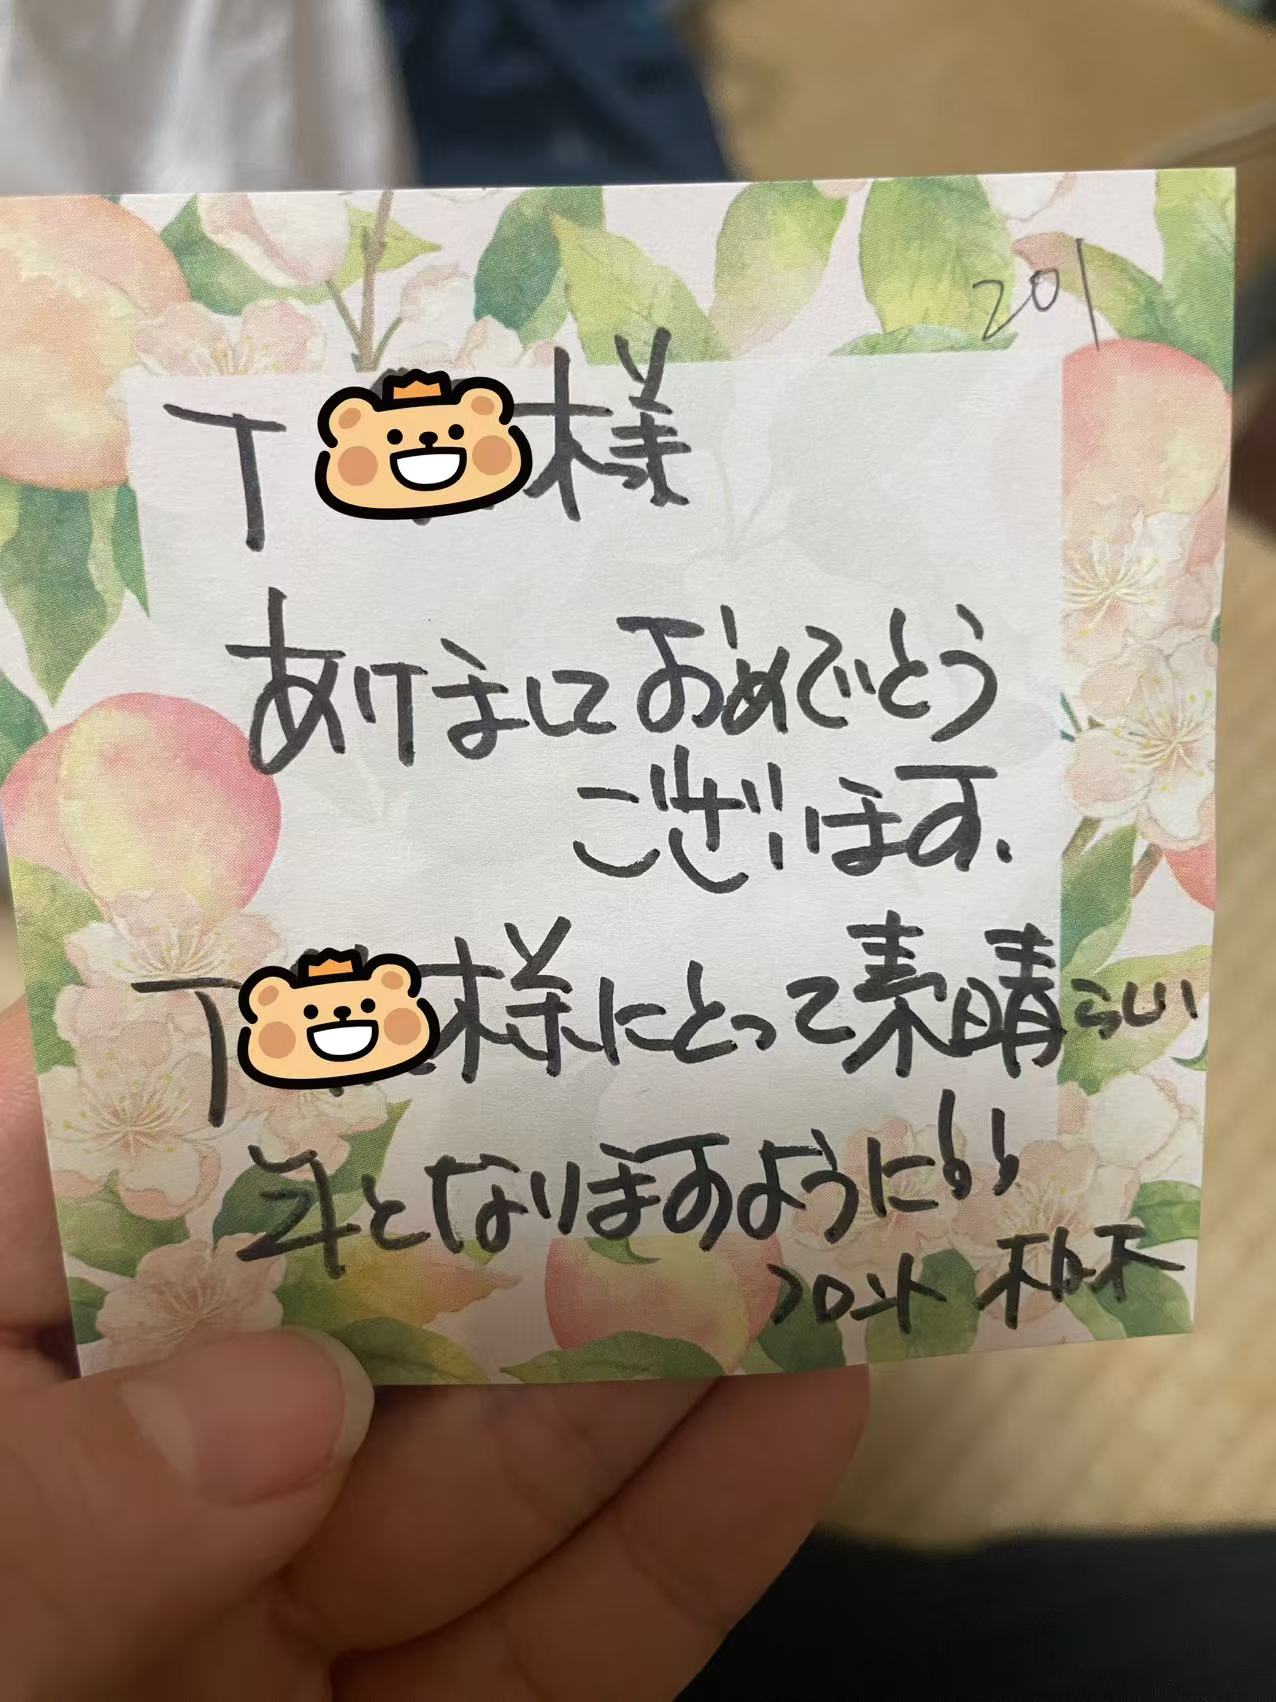 201
T 様
あけましておめでとう
ございます.
T 様にとって素晴らしい
年となりますように!!
フロント 柏木